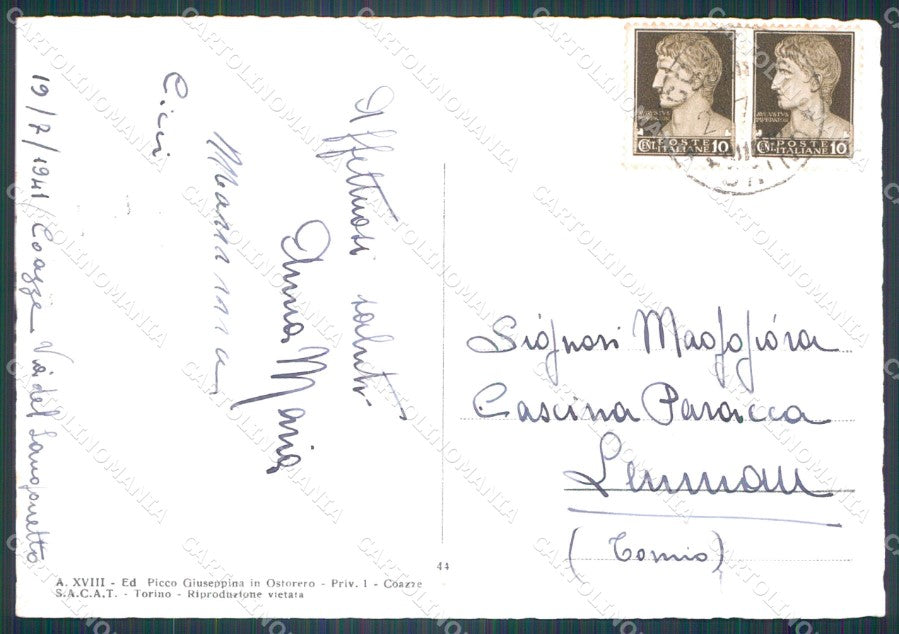 19/7/1941 Coazze Via del
Cici
Mamma
Affettuosi saluti
Anna Maria
AVGVSTVS
IMPERATOR
POSTE
CENT. ITALIANE 10
AVGVSTVS
IMPERATOR
POSTE
CENT. ITALIANE 10
Signori Maggiora
Cascina Paracca
(Torino)
44
A. XVIII - Ed Picco Giuseppina in Ostorero - Priv. 1 - Coazze
S.A.C.A.T. - Torino - Riproduzione vietata
CARTOLINOMANIA